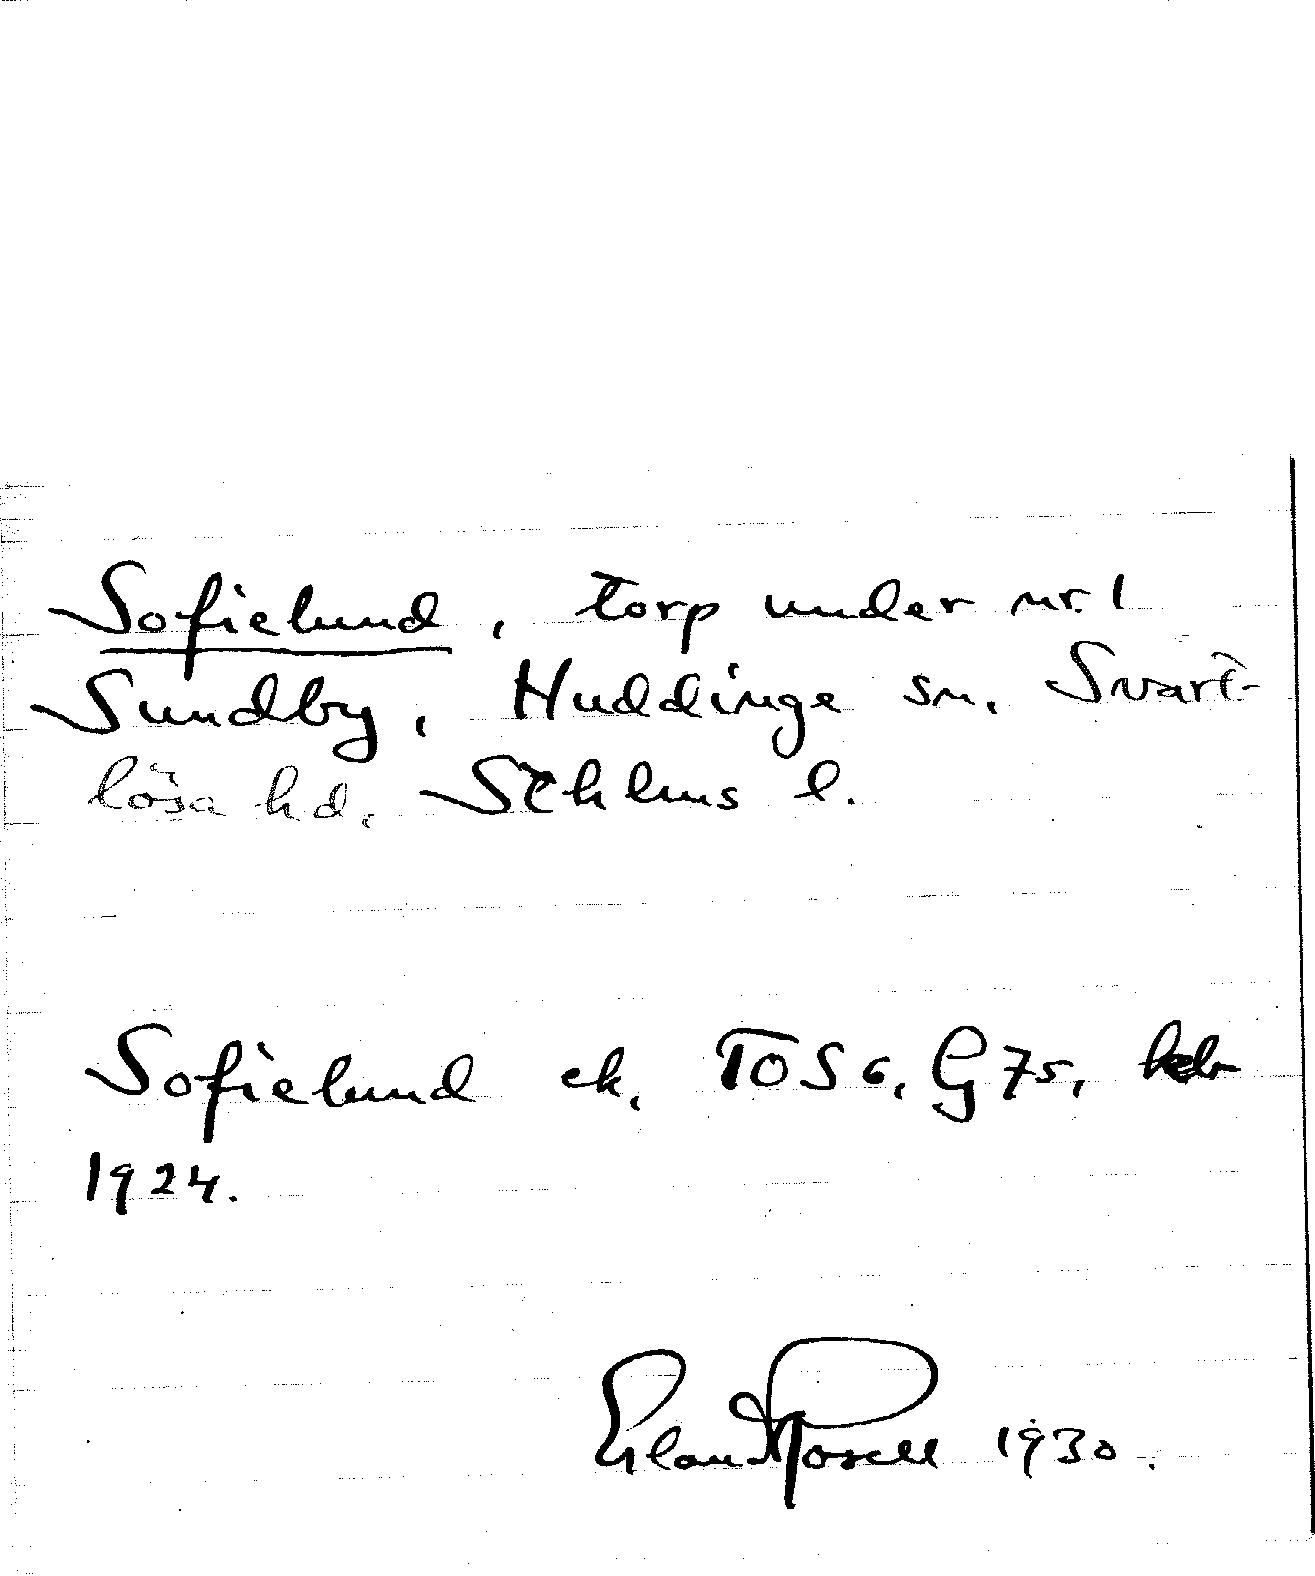 Sofielund, torp under nr. 1
Sundby, Huddinge sn, Svart-
lösa hd, Sthlms l.
Sofielund ek. TOS 6, G 75,
1924.
Erland Rosell 1930.